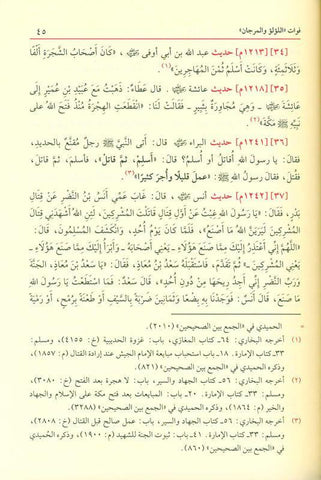 فوات «اللؤلؤ والمرجان»
٤٥
[٣٤] [١٢١٣م] حديث عبد الله بن أبي أوفى ﷺ ، «كَانَ أَصْحَابُ الشَّجَرَةِ أَلْفًا
وَثَلَاثَمِئَةٍ، وَكَانَتْ أَسْلَمُ ثُمُنَ الْمُهَاجِرِينَ»(١).
[٣٥] [١٢١٨م] حديث عائشة ﷺ . قال عَطَاءٌ: ذَهَبْتُ مَعَ عُبَيْدِ بْنِ عُمَيْرٍ إِلَى
عَائِشَةَ ﷺ - وَهِيَ مُجَاوِرَةٌ بِثَبِيرٍ - فَقَالَتْ لَنَا: «انْقَطَعَتِ الْهِجْرَةُ مُنْذُ فَتَحَ اللهُ عَلَى
نَبِيِّهِ ﷺ مَكَّةَ»(٢).
[٣٦] [١٢٤١م] حديث البراء ﷺ قال: أتى النَّبِيَّ ﷺ رجلٌ مُقَنَّعٌ بالحديدِ،
فقالَ: يا رسولَ اللهِ أُقاتلُ أو أُسلمُ؟ قالَ: «أَسلِمْ، ثمَّ قاتلْ»، فأسلمَ، ثمَّ قاتلَ،
فقُتلَ، فقالَ رسولُ اللهِ ﷺ: «عملَ قليلًا وأُجرَ كثيرًا»(٣).
[٣٧] [١٢٤٢م] حديث أنس ﷺ، قَالَ: غَابَ عَمِّي أَنَسُ بْنُ النَّضْرِ عَنْ قِتَالِ
بَدْرٍ، فَقَالَ: «يَا رَسُولَ اللهِ غِبْتُ عَنْ أَوَّلِ قِتَالٍ قَاتَلْتَ الْمُشْرِكِينَ، لَئِنِ اللهُ أَشْهَدَنِي قِتَالَ
الْمُشْرِكِينَ لَيَرَيَنَّ اللهُ مَا أَصْنَعُ»، فَلَمَّا كَانَ يَوْمُ أُحُدٍ، وَانْكَشَفَ الْمُسْلِمُونَ، قَالَ:
«اللَّهُمَّ إِنِّي أَعْتَذِرُ إِلَيْكَ مِمَّا صَنَعَ هَؤُلَاءِ - يَعْنِي أَصْحَابَهُ - وَأَبْرَأُ إِلَيْكَ مِمَّا صَنَعَ هَؤُلَاءِ -
يَعْنِي الْمُشْرِكِينَ -» ثُمَّ تَقَدَّمَ، فَاسْتَقْبَلَهُ سَعْدُ بْنُ مُعَاذٍ، فَقَالَ: «يَا سَعْدُ بْنَ مُعَاذٍ، الْجَنَّةَ
وَرَبِّ النَّضْرِ إِنِّي أَجِدُ رِيحَهَا مِنْ دُونِ أُحُدٍ»، قَالَ سَعْدٌ: فَمَا اسْتَطَعْتُ يَا رَسُولَ اللهِ مَا
صَنَعَ، قَالَ أَنَسٌ: فَوَجَدْنَا بِهِ بِضْعًا وَثَمَانِينَ ضَرْبَةً بِالسَّيْفِ أَوْ طَعْنَةً بِرُمْحٍ، أَوْ رَمْيَةً
= الحميدي في «الجمع بين الصحيحين» (٢٠١٠).
(١) أخرجه البخاري: ٦٤- كتاب المغازي، باب: غزوة الحديبية (ع: ٤١٥٥)، ومسلم:
٣٣- كتاب الإمارة. ١٨- باب استحباب مبايعة الإمام الجيش عند إرادة القتال (م: ١٨٥٧)،
وذكره الحميدي في «الجمع بين الصحيحين» (٨٢١).
(٢) أخرجه البخاري: ٥٦- كتاب الجهاد والسير، باب: لا هجرة بعد الفتح (خ: ٣٠٨٠)،
ومسلم: ٣٣- كتاب الإمارة. ٢٠- باب: المبايعات بعد فتح مكة على الإسلام والجهاد
والخير (م: ١٨٦٤)، وذكره الحميدي في «الجمع بين الصحيحين» (٣٢٨٨).
(٣) أخرجه البخاري: ٥٦- كتاب الجهاد والسير، باب: عمل صالح قبل القتال (خ: ٢٨٠٨)،
ومسلم: ٣٣- كتاب الإمارة. ٤١- باب: ثبوت الجنة للشهيد (م: ١٩٠٠)، وذكره الحُميدي
في «الجمع بين الصحيحين» (٨٦٠).